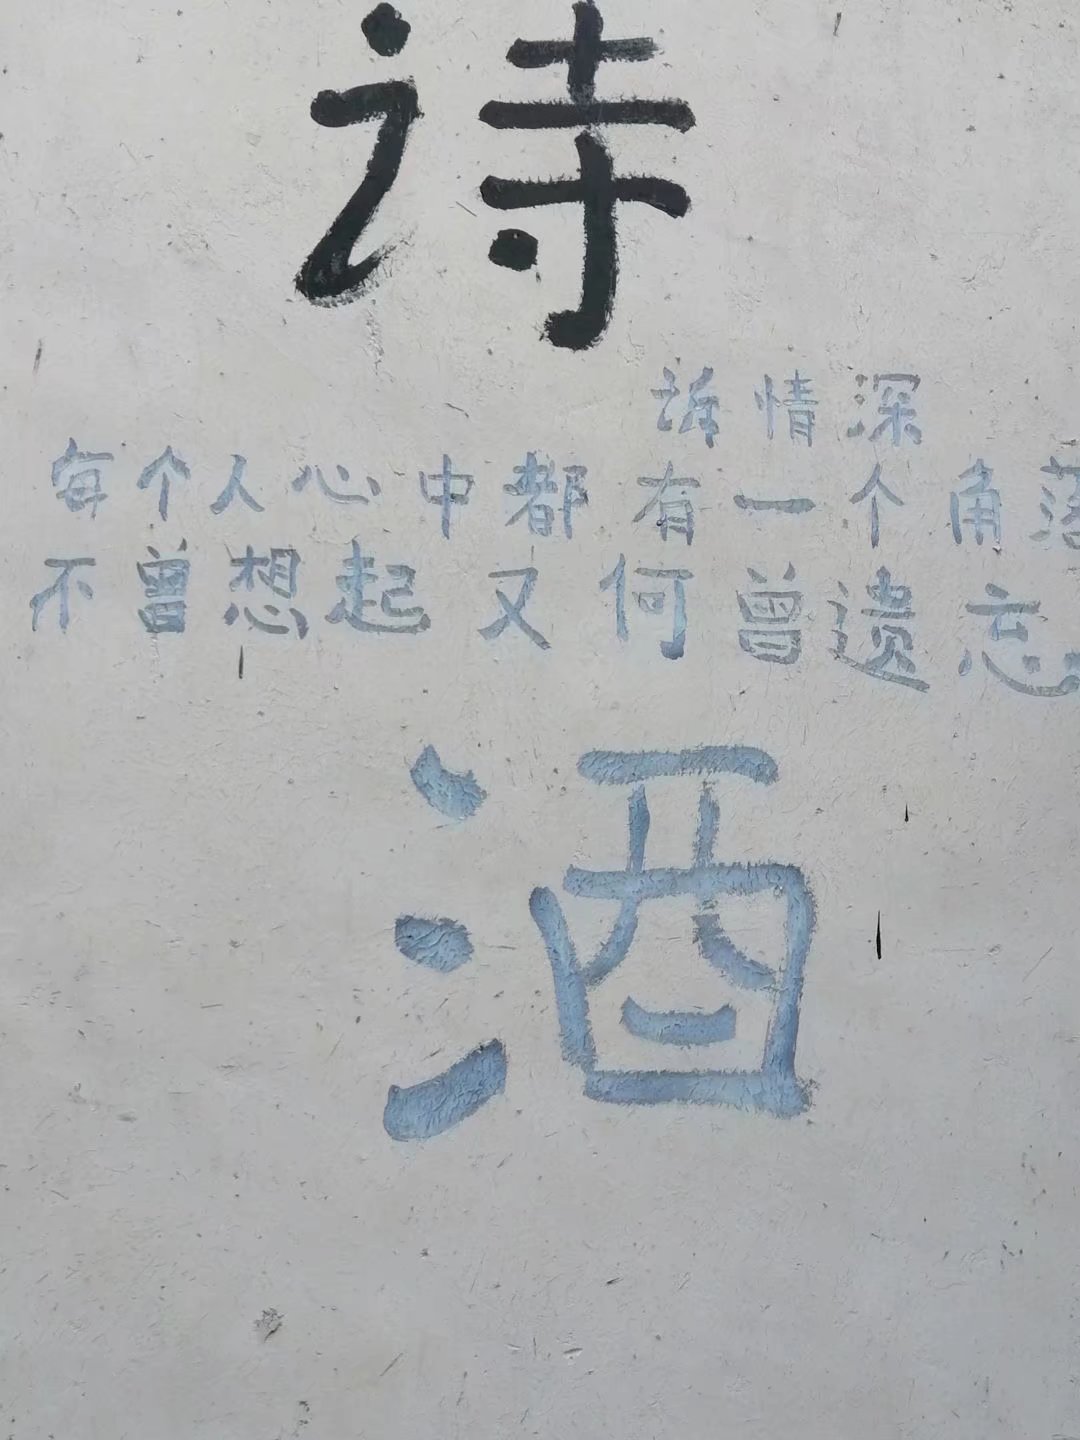 诗
诉情深
每个人心中都有一个角落
不曾想起又何曾遗忘
酒